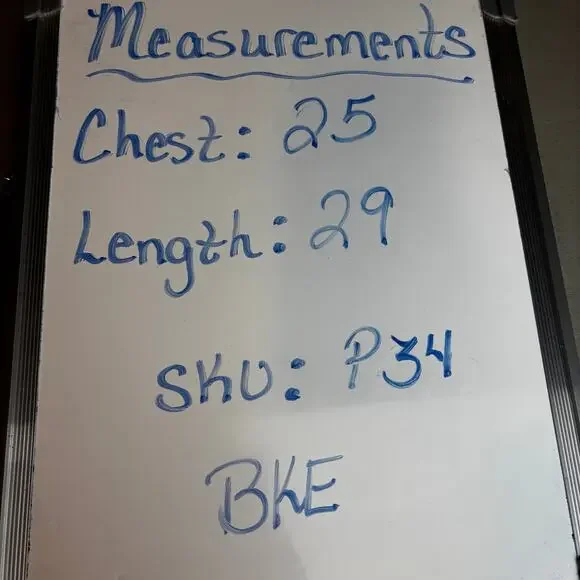 Measurements
Chest: 25
Length: 29
SKU: P34
BKE